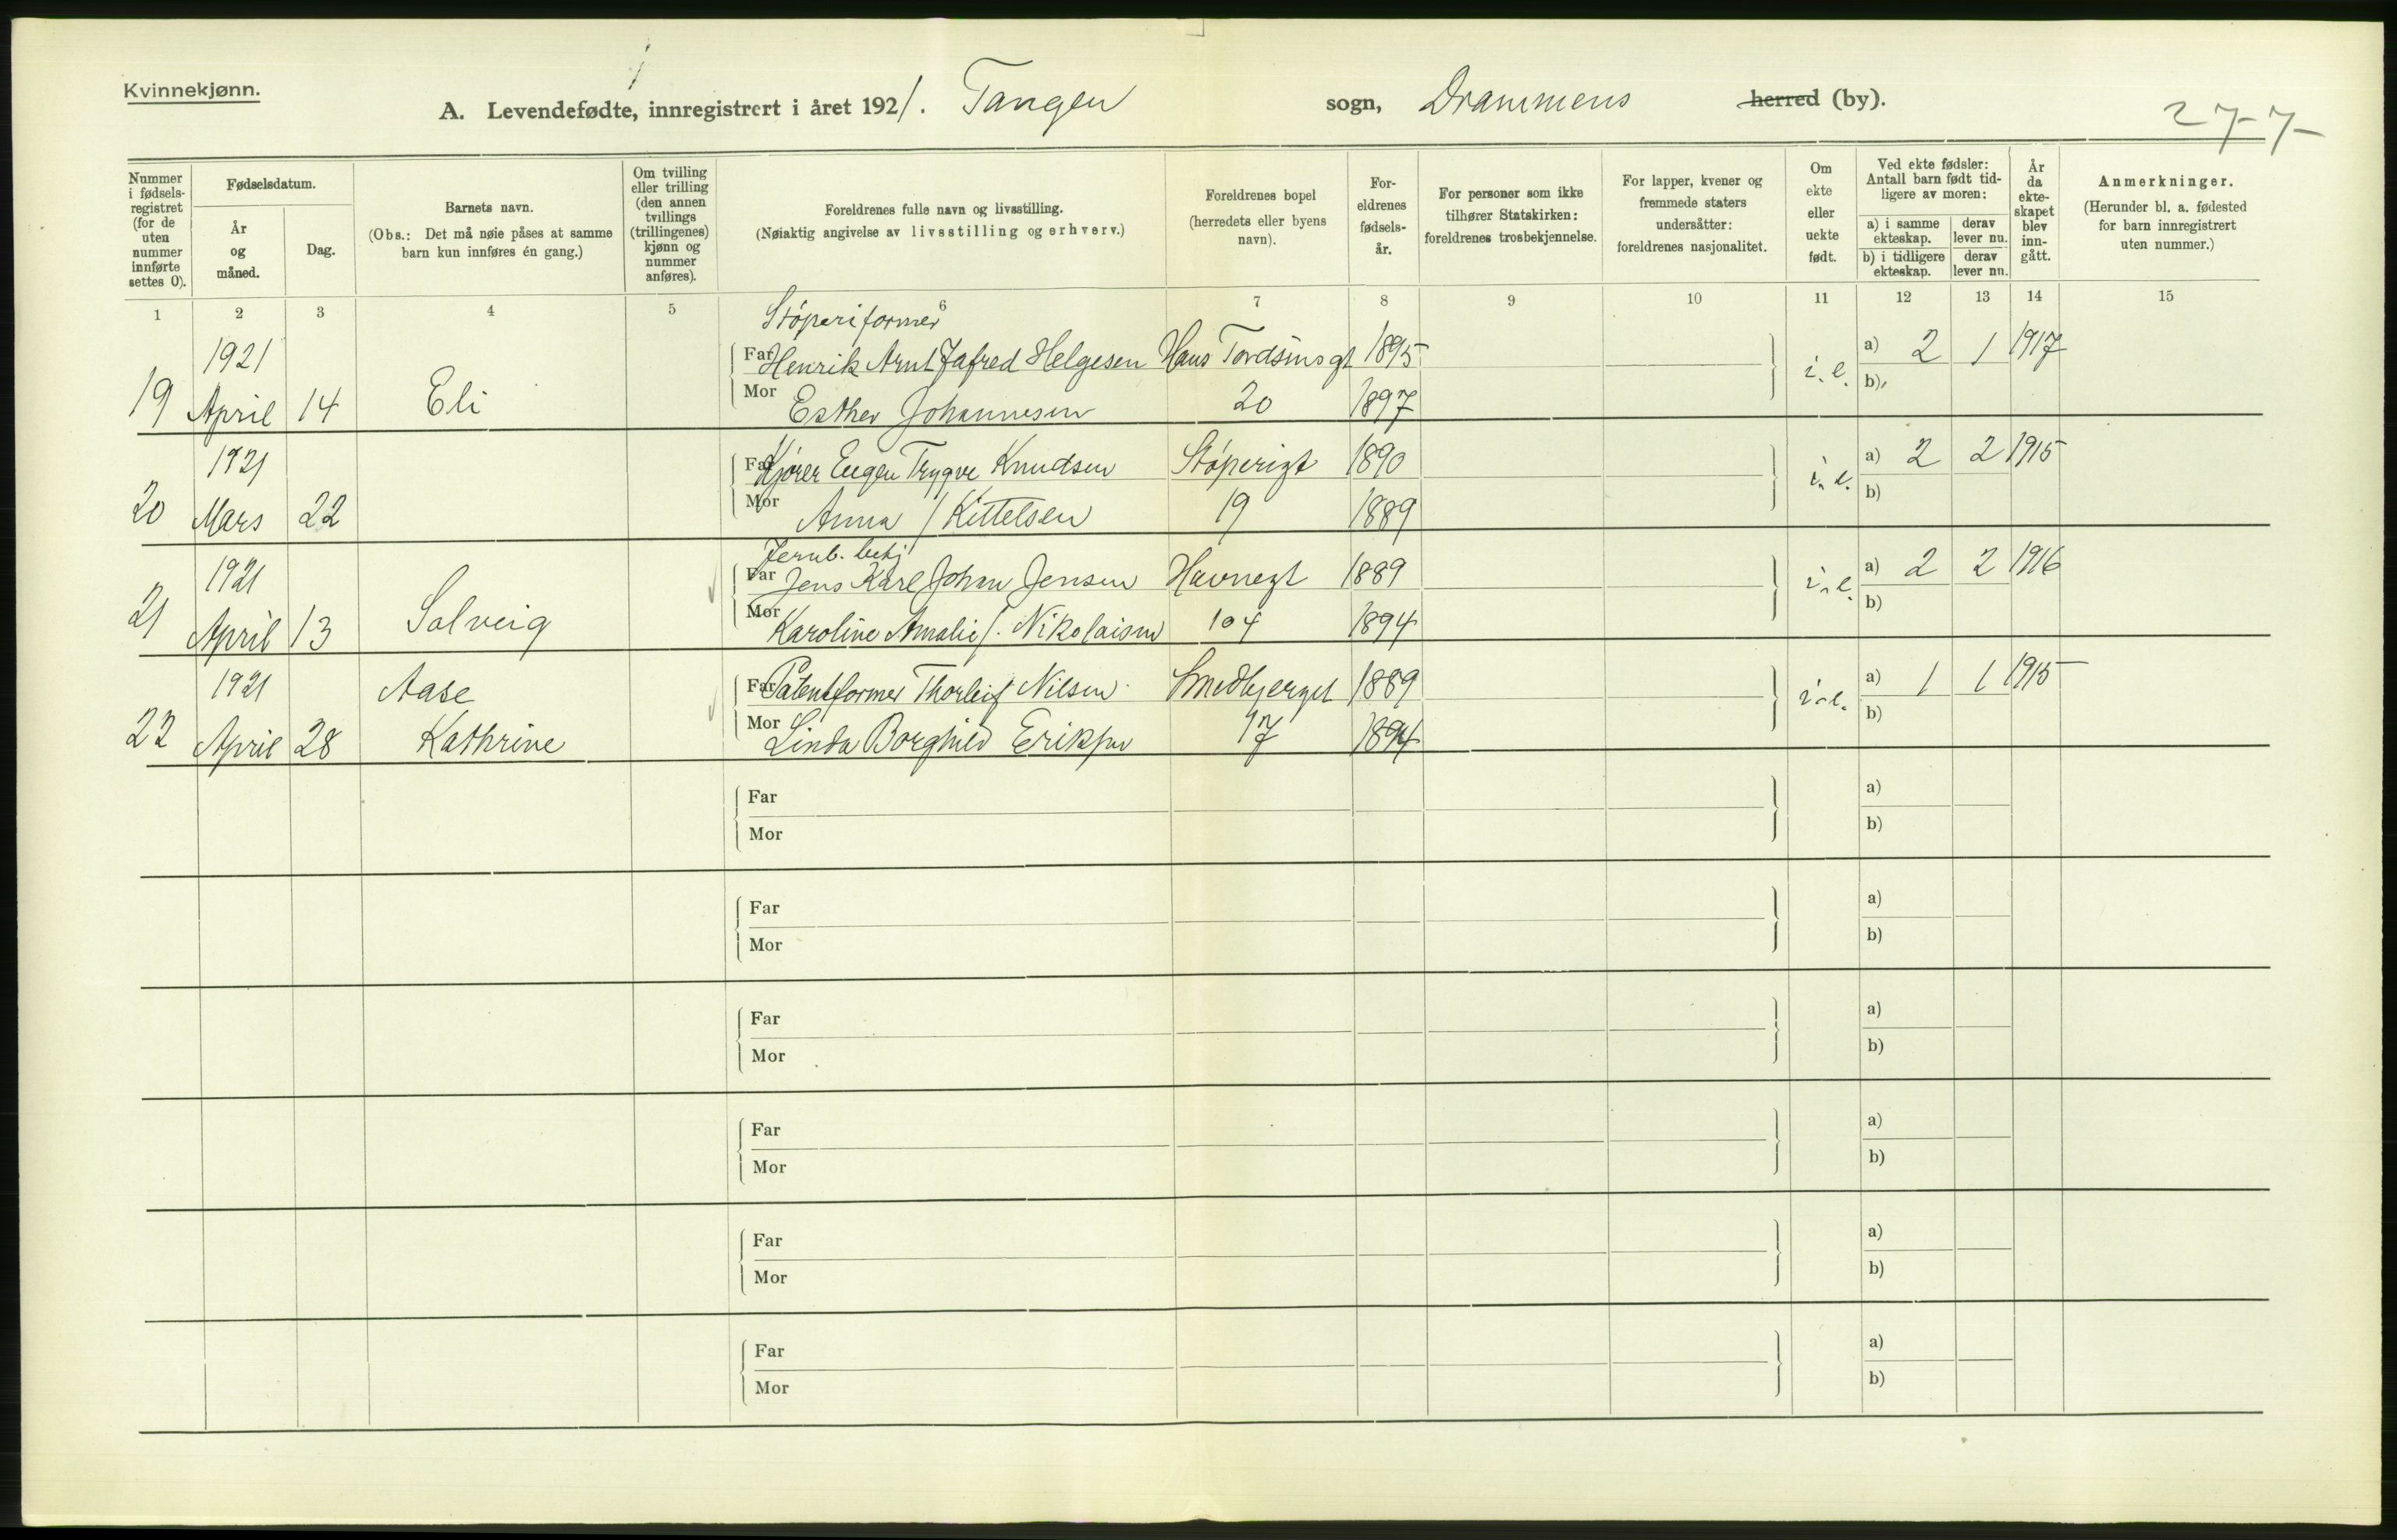 Kvinnekjønn.
A. Levendefødte, innregistrert i året 1921. Tangen sogn, Drammens herred (by).
277
Nummer i fødselsregistret (for de uten nummer innførte settes 0).
Fødselsdatum.
År og måned.
Dag.
Barnets navn.
(Obs.: Det må nøie påses at samme barn kun innføres én gang.)
Om tvilling eller trilling (den annen tvillings (trillingenes) kjønn og nummer anføres).
Foreldrenes fulle navn og livsstilling.
(Nøiaktig angivelse av livsstilling og erhverv.)
Foreldrenes bopel (herredets eller byens navn).
Foreldrenes fødselsår.
For personer som ikke tilhører Statskirken: foreldrenes trosbekjennelse.
For lapper, kvener og fremmede staters undersåtter: foreldrenes nasjonalitet.
Om ekte eller uekte født.
Ved ekte fødsler: Antall barn født tidligere av moren:
a) i samme ekteskap. derav lever nu.
b) i tidligere ekteskap. derav lever nu.
År da ekteskapet blev inngått.
Anmerkninger.
(Herunder bl. a. fødested for barn innregistrert uten nummer.)
1 2 3 4 5 6 7 8 9 10 11 12 13 14 15
Støperiformer
1921 Far Henrik Arnt Henrik Helgesen Hans Tordsensgt 1895 a) 2 1 1917
19 April 14 Eli Mor Esther Johannesen 20 1897 i. e. b)
1921 Far Kjører Eugen Trygve Knudsen Støperigt 1890 a) 2 2 1915
20 Mars 22 Mor Anna / Kittelsen 19 1889 i. e. b)
Jernb. betj
1921 Far Jens Karl Johan Jensen Havnegt 1889 a) 2 2 1916
21 April 13 Solveig Mor Karoline Amalie /. Nikolaisen 104 1894 i. e. b)
1921 Aase Far Patentformer Thorleif Nilsen Smedbjerget 1889 a) 1 1 1915
22 April 28 Kathrine Mor Linda Borghild Eriksen 17 1894 i. e. b)
Far a)
Mor b)
Far a)
Mor b)
Far a)
Mor b)
Far a)
Mor b)
Far a)
Mor b)
Far a)
Mor b)